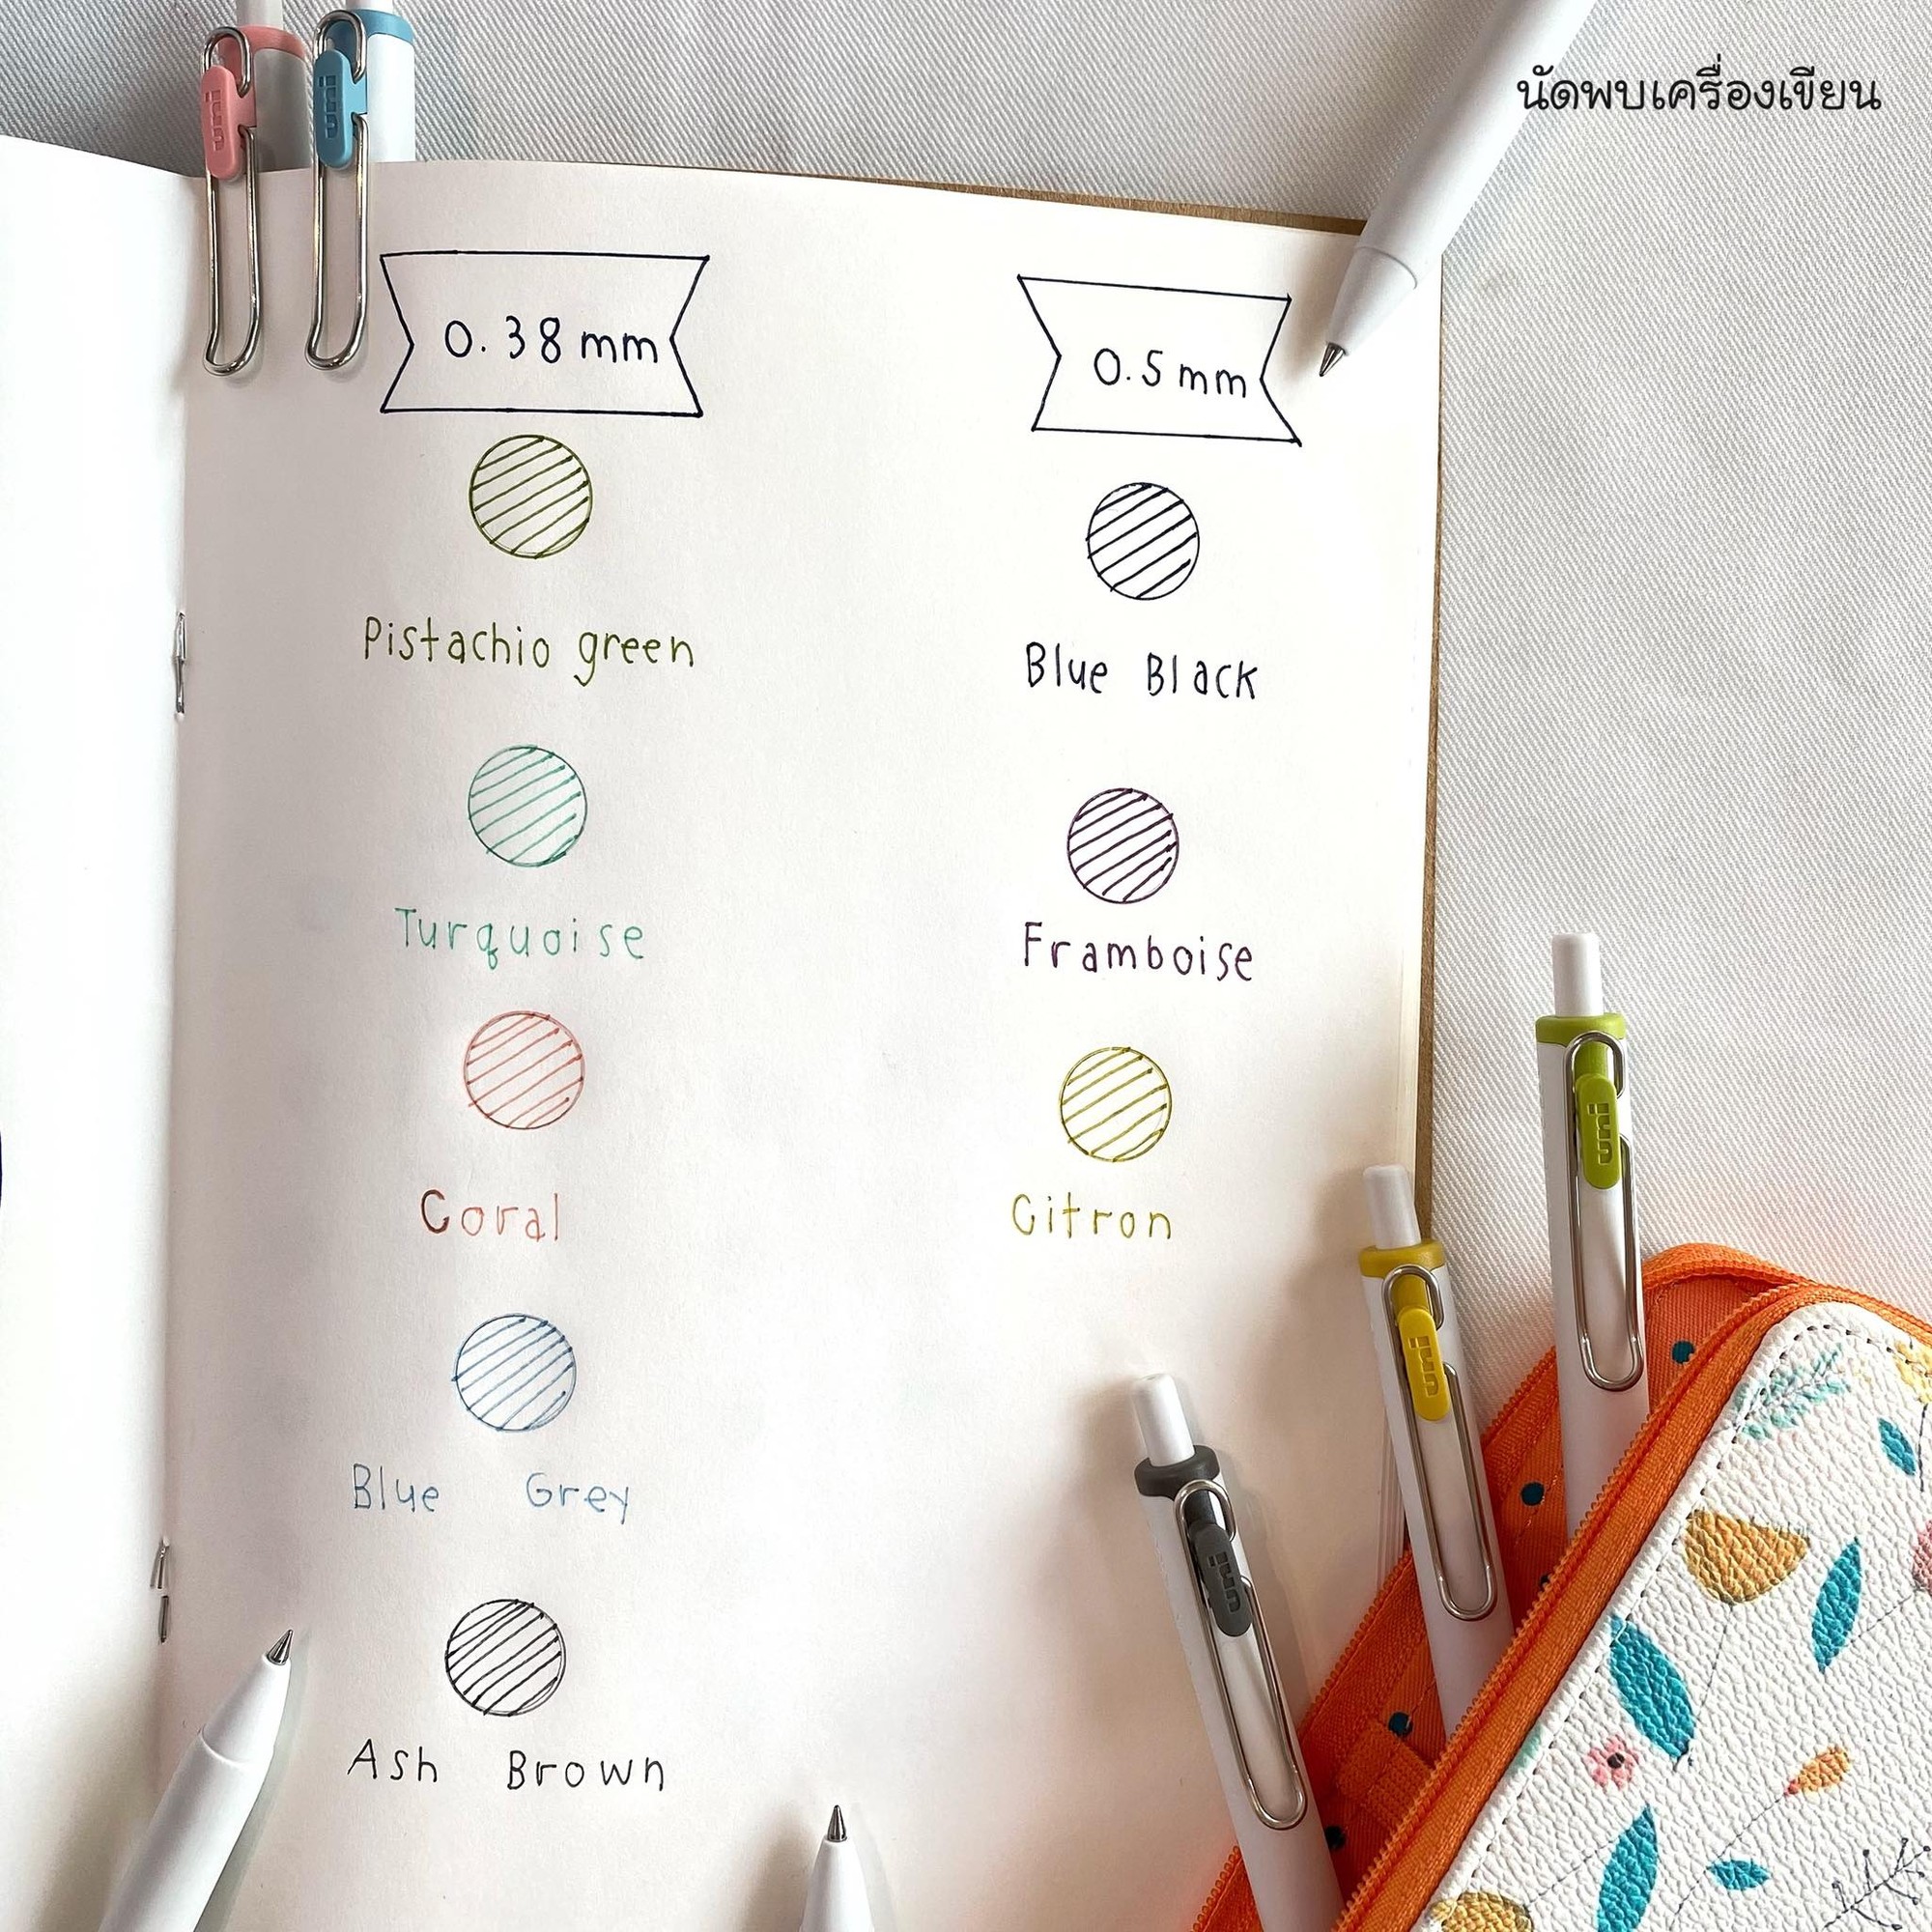 นัดพบเครื่องเขียน
uni
uni
0.38 mm
Pistachio green
Turquoise
Coral
Blue Grey
Ash Brown
0.5 mm
Blue Black
Framboise
Citron
uni
uni
uni